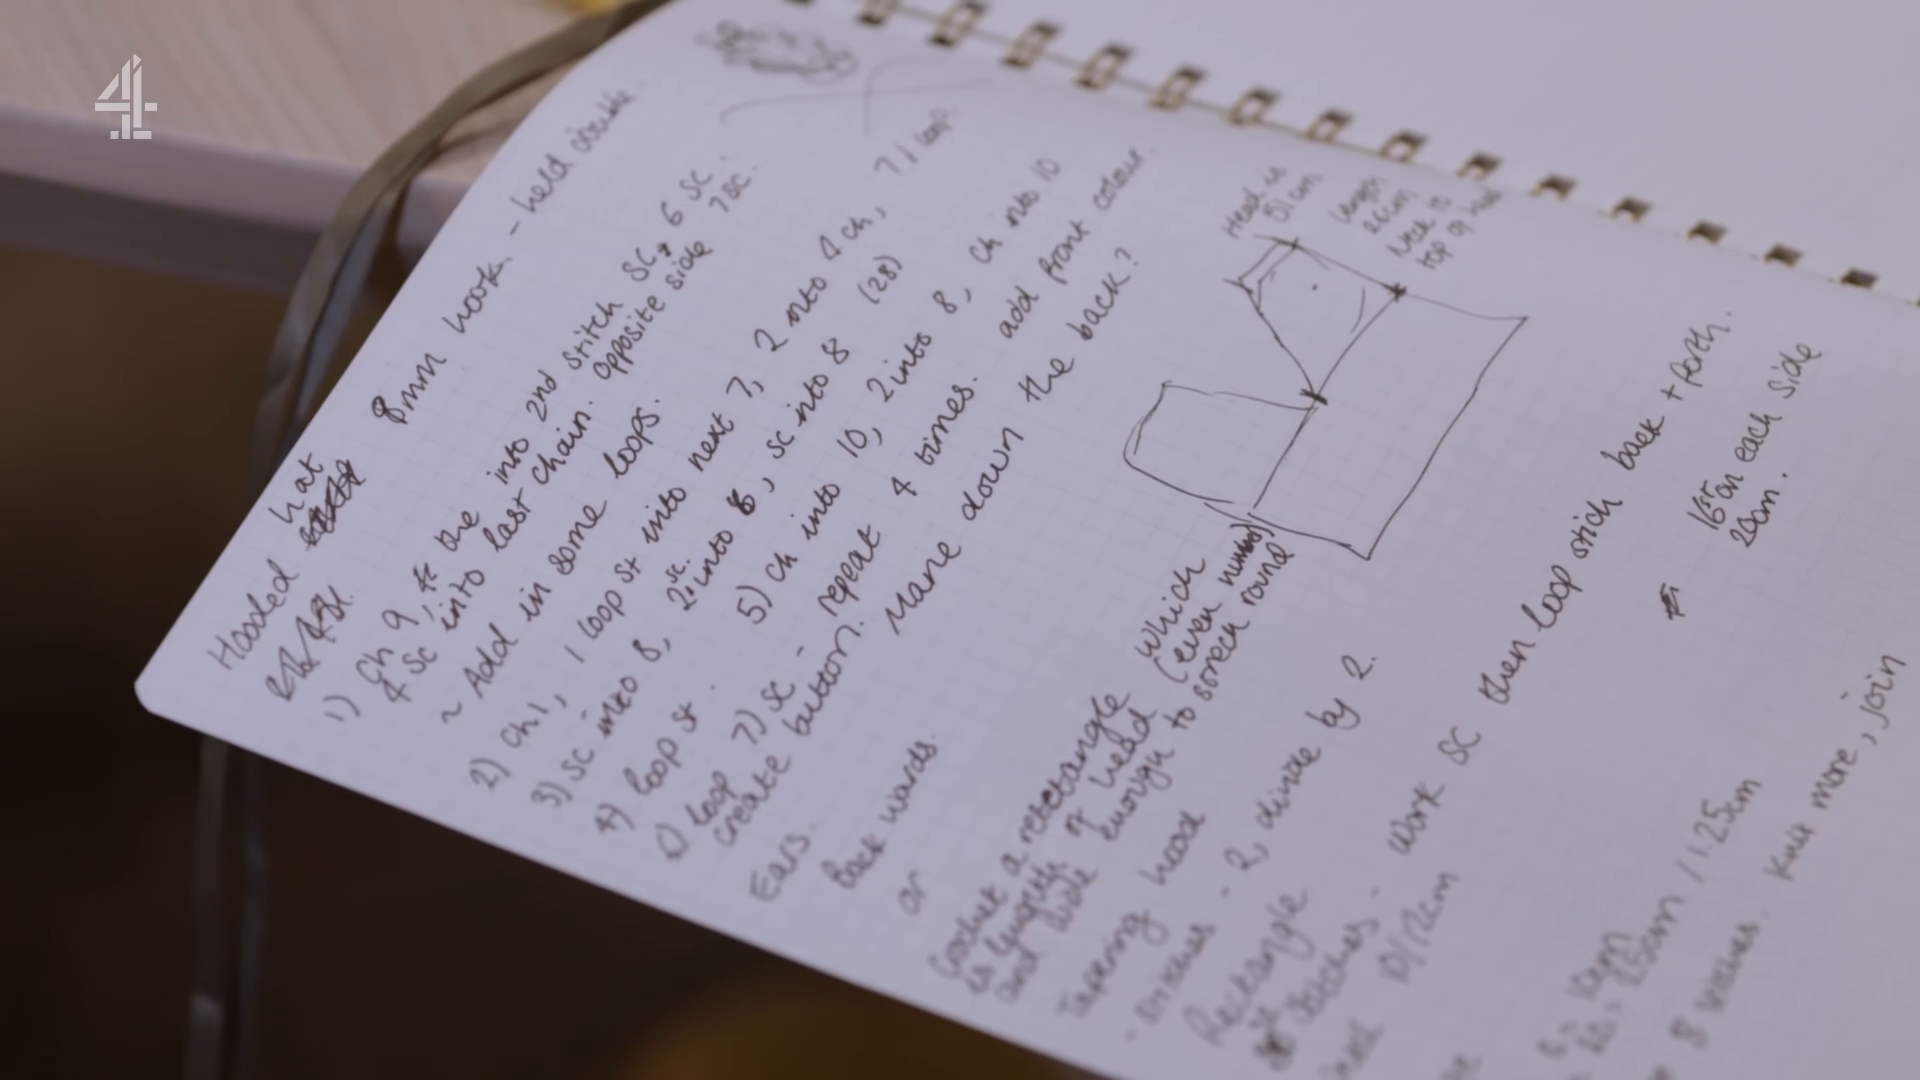 4
Hooded hat 8mm hook. - held double.
1) Ch 9, dc into 2nd stitch SC, 6 SC.
4 SC into last chain. opposite side 7 SC.
~ Add in some loops.
2) Ch 1, 1 loop st into next 7, 2 into 4 ch, 7, 1 loop
3) SC into 8, 2 SC into 8, SC into 8 (28)
4) loop st. 5) Ch into 10, 2 into 8, ch into 10
6) loop 7) SC - repeat 4 times. add front colour.
create button. Mane down the back?
Ears.
Back wards.
or
Head is
51cm
Length
26cm
Neck 10
top 9
Crochet a rectangle which
is length of head (even number)
and wide enough to stretch round
Tapering hood
- stitches - 2, divide by 2.
Rectangle
stitches - work SC then loop stich back + forth.
10/12cm
16st on each side
20cm.
10cm
25cm / 125cm
8 inches. Knit more, join